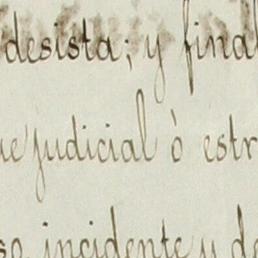 desista; y final
ue judicial ò estr
so incidente y de